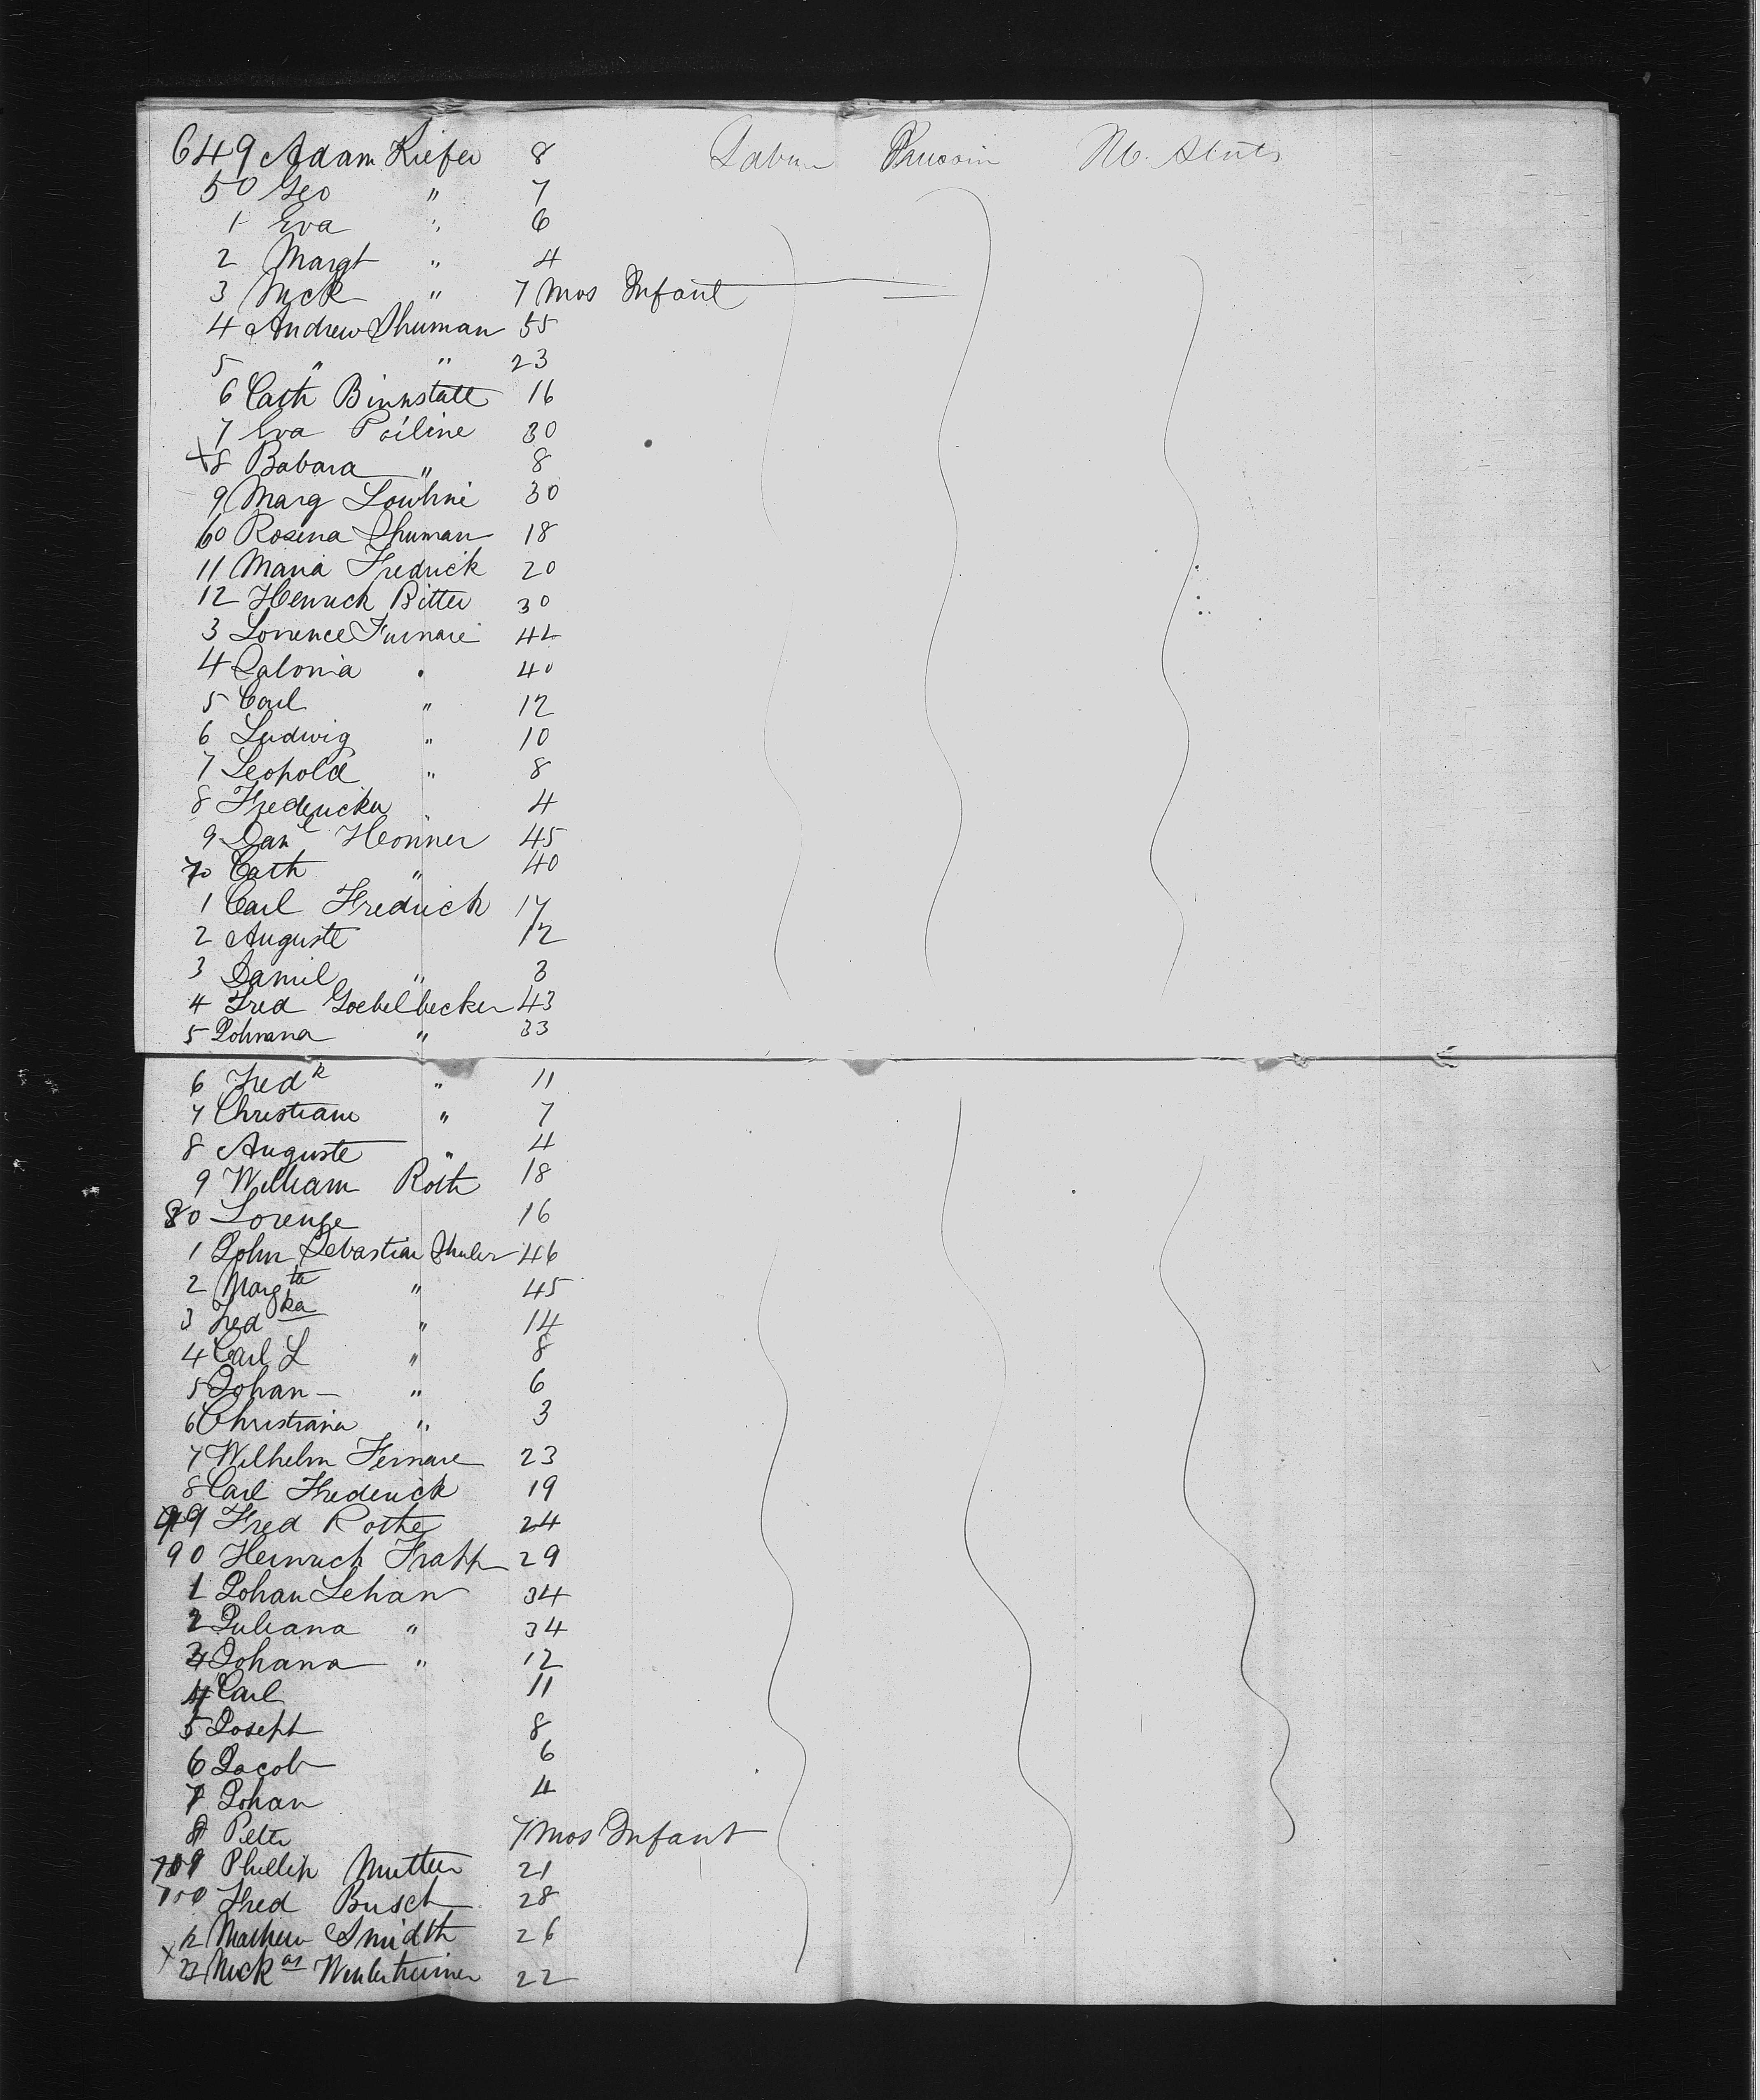 649 Adam Kiefer 8 Labur Prussia U. States
50 Geo " 7
1 Eva " 6
2 Margt " 4
3 Nick " 7 Mos Infant
4 Andrew Shuman 55
5 " " 23
6 Cath Binnstatt 16
7 Eva Poiline 30
x8 Babara " 8
9 Marg 30
60 Rosina Shuman 18
11 Maria Fredrick 20
12 Henrich Ritter 30
3 Lorrence Furnare 42
4 Salomia " 40
5 Carl " 12
6 Ludwig " 10
7 Leopold " 8
8 Fredericka " 4
9 Danl Honner 45
70 Cath " 40
1 Carl Fredrick 17
2 Auguste 12
3 Daniel " 3
4 Fred Goebelbecker 43
5 Johnana " 33
6 Fredk " 11
7 Christiane " 7
8 Auguste " 4
9 William Roth 18
80 Lorenze 16
1 John Sebastian Shuler 46
2 Margta " 45
3 Fredka " 14
4 Carl L " 8
5 Johan - " 6
6 Christiana " 3
7 Wilhelm Fernare 23
8 Carl Frederick 19
99 Fred Rothe 24
90 Heinrich Frapp 29
1 Johan Lehan 34
2 Juliana " 34
3 Johana " 12
4 Carl 11
5 Joseph 8
6 Jacob 6
7 Johan 4
8 Peter 7 Mos Infant
9 Phillip Mutter 21
700 Fred Busch 28
2 Mathew Smidth 26
x Nickas 22